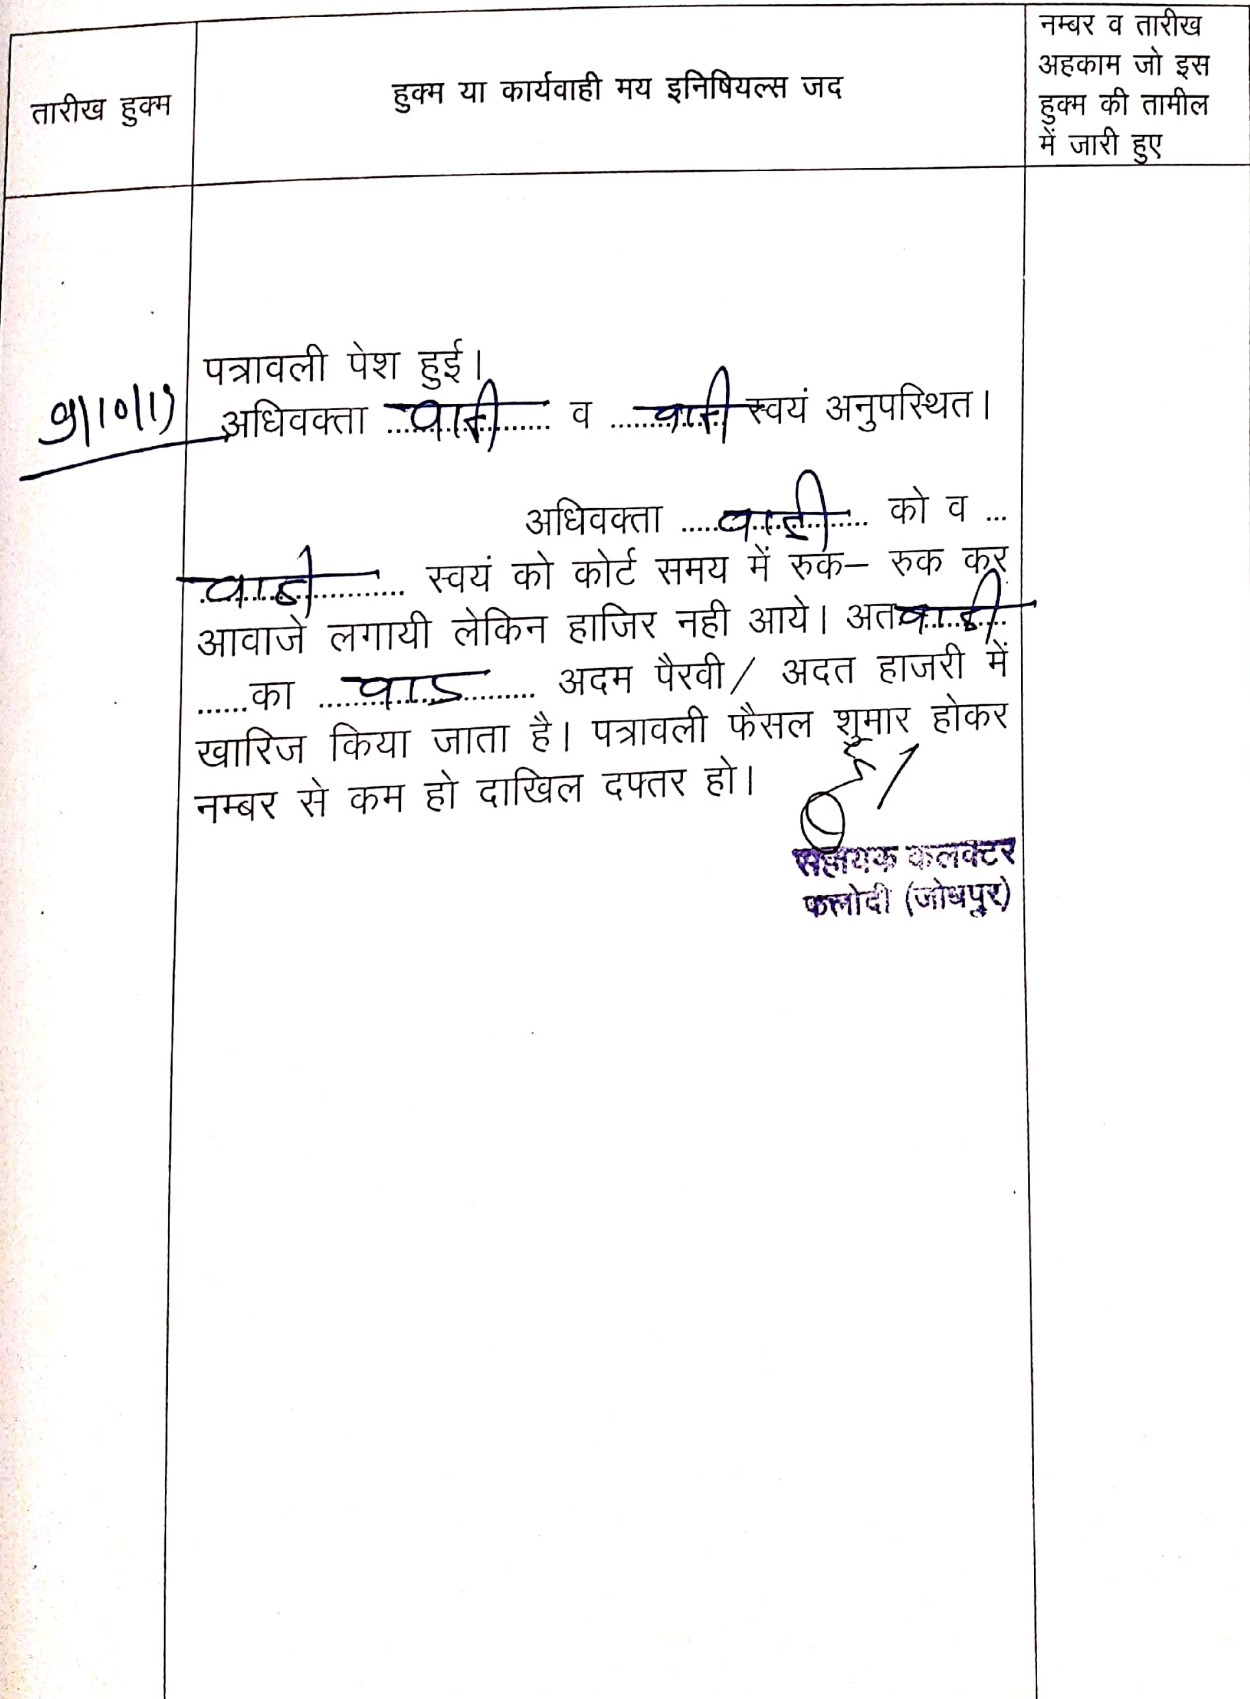 तारीख हुक्म
हुक्म या कार्यवाही मय इनिषियल्स जद
नम्बर व तारीख
अहकाम जो इस
हुक्म की तामील
में जारी हुए
पत्रावली पेश हुई।
9/10/19
अधिवक्ता ....वादी.... व ....वादी स्वयं अनुपस्थित।
अधिवक्ता ....वादी.... को व ...
वादी.... स्वयं को कोर्ट समय में रुक– रुक कर
आवाजे लगायी लेकिन हाजिर नही आये। अत वादी
......का ....वाद.... अदम पैरवी/ अदत हाजरी में
खारिज किया जाता है। पत्रावली फैसल शुमार होकर
नम्बर से कम हो दाखिल दफ्तर हो।
सहायक कलक्टर
फलोदी (जोधपुर)